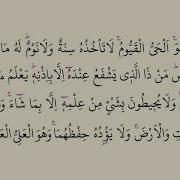 اَلْحَیُّ الْقَیُّوْمُ ۚ لَا تَاْخُذُهٗ سِنَةٌ وَّلَا نَوْمٌ ؕ لَهٗ مَا
مَنْ ذَا الَّذِیْ یَشْفَعُ عِنْدَهٗۤ اِلَّا بِاِذْنِهٖ ؕ یَعْلَمُ
وَلَا یُحِیْطُوْنَ بِشَیْءٍ مِّنْ عِلْمِهٖۤ اِلَّا بِمَا شَآءَ ۚ
وَالْاَرْضَ ۚ وَلَا یَـُٔوْدُهٗ حِفْظُهُمَا ۚ وَهُوَ الْعَلِیُّ